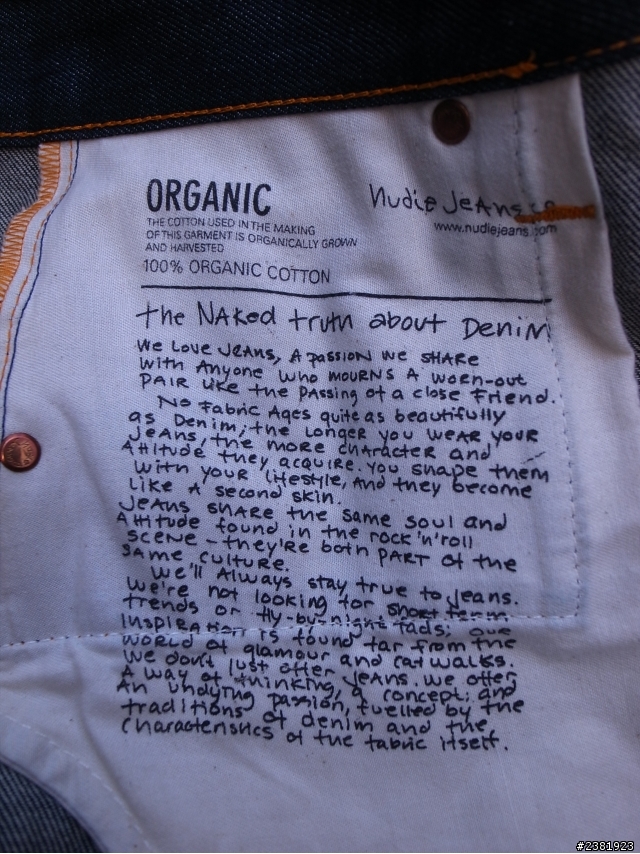 ORGANIC
THE COTTON USED IN THE MAKING
OF THIS GARMENT IS ORGANICALLY GROWN
AND HARVESTED
100% ORGANIC COTTON
Nudie Jeans co
www.nudiejeans.com
the NAKed truth about Denim
We Love JeAns, A passion we sHARe
with Anyone who mourns A worn-out
PAIR Like the passing of a close friend.
No fabric Ages quite as beautifully
as Denim; the Longer you weAr your
Jeans, the more character and
Attitude they acquire. You shape them
with your lifestyle, And they become
like A second skin.
Jeans share the same soul and
Attitude found in the rock'n'roll
scene - they're both PART of the
same culture.
We'll Always stay true to Jeans.
We're not looking for short term
trends or fly-by-night fads; our
INspIRAtion is found far from the
world of glamour and catwalks.
We don't just offer Jeans. we offer
A way of thinking, a concept; and
An undying passion, fuelled by the
traditions of denim and the
characteristics of the fabric itself.
#2381923